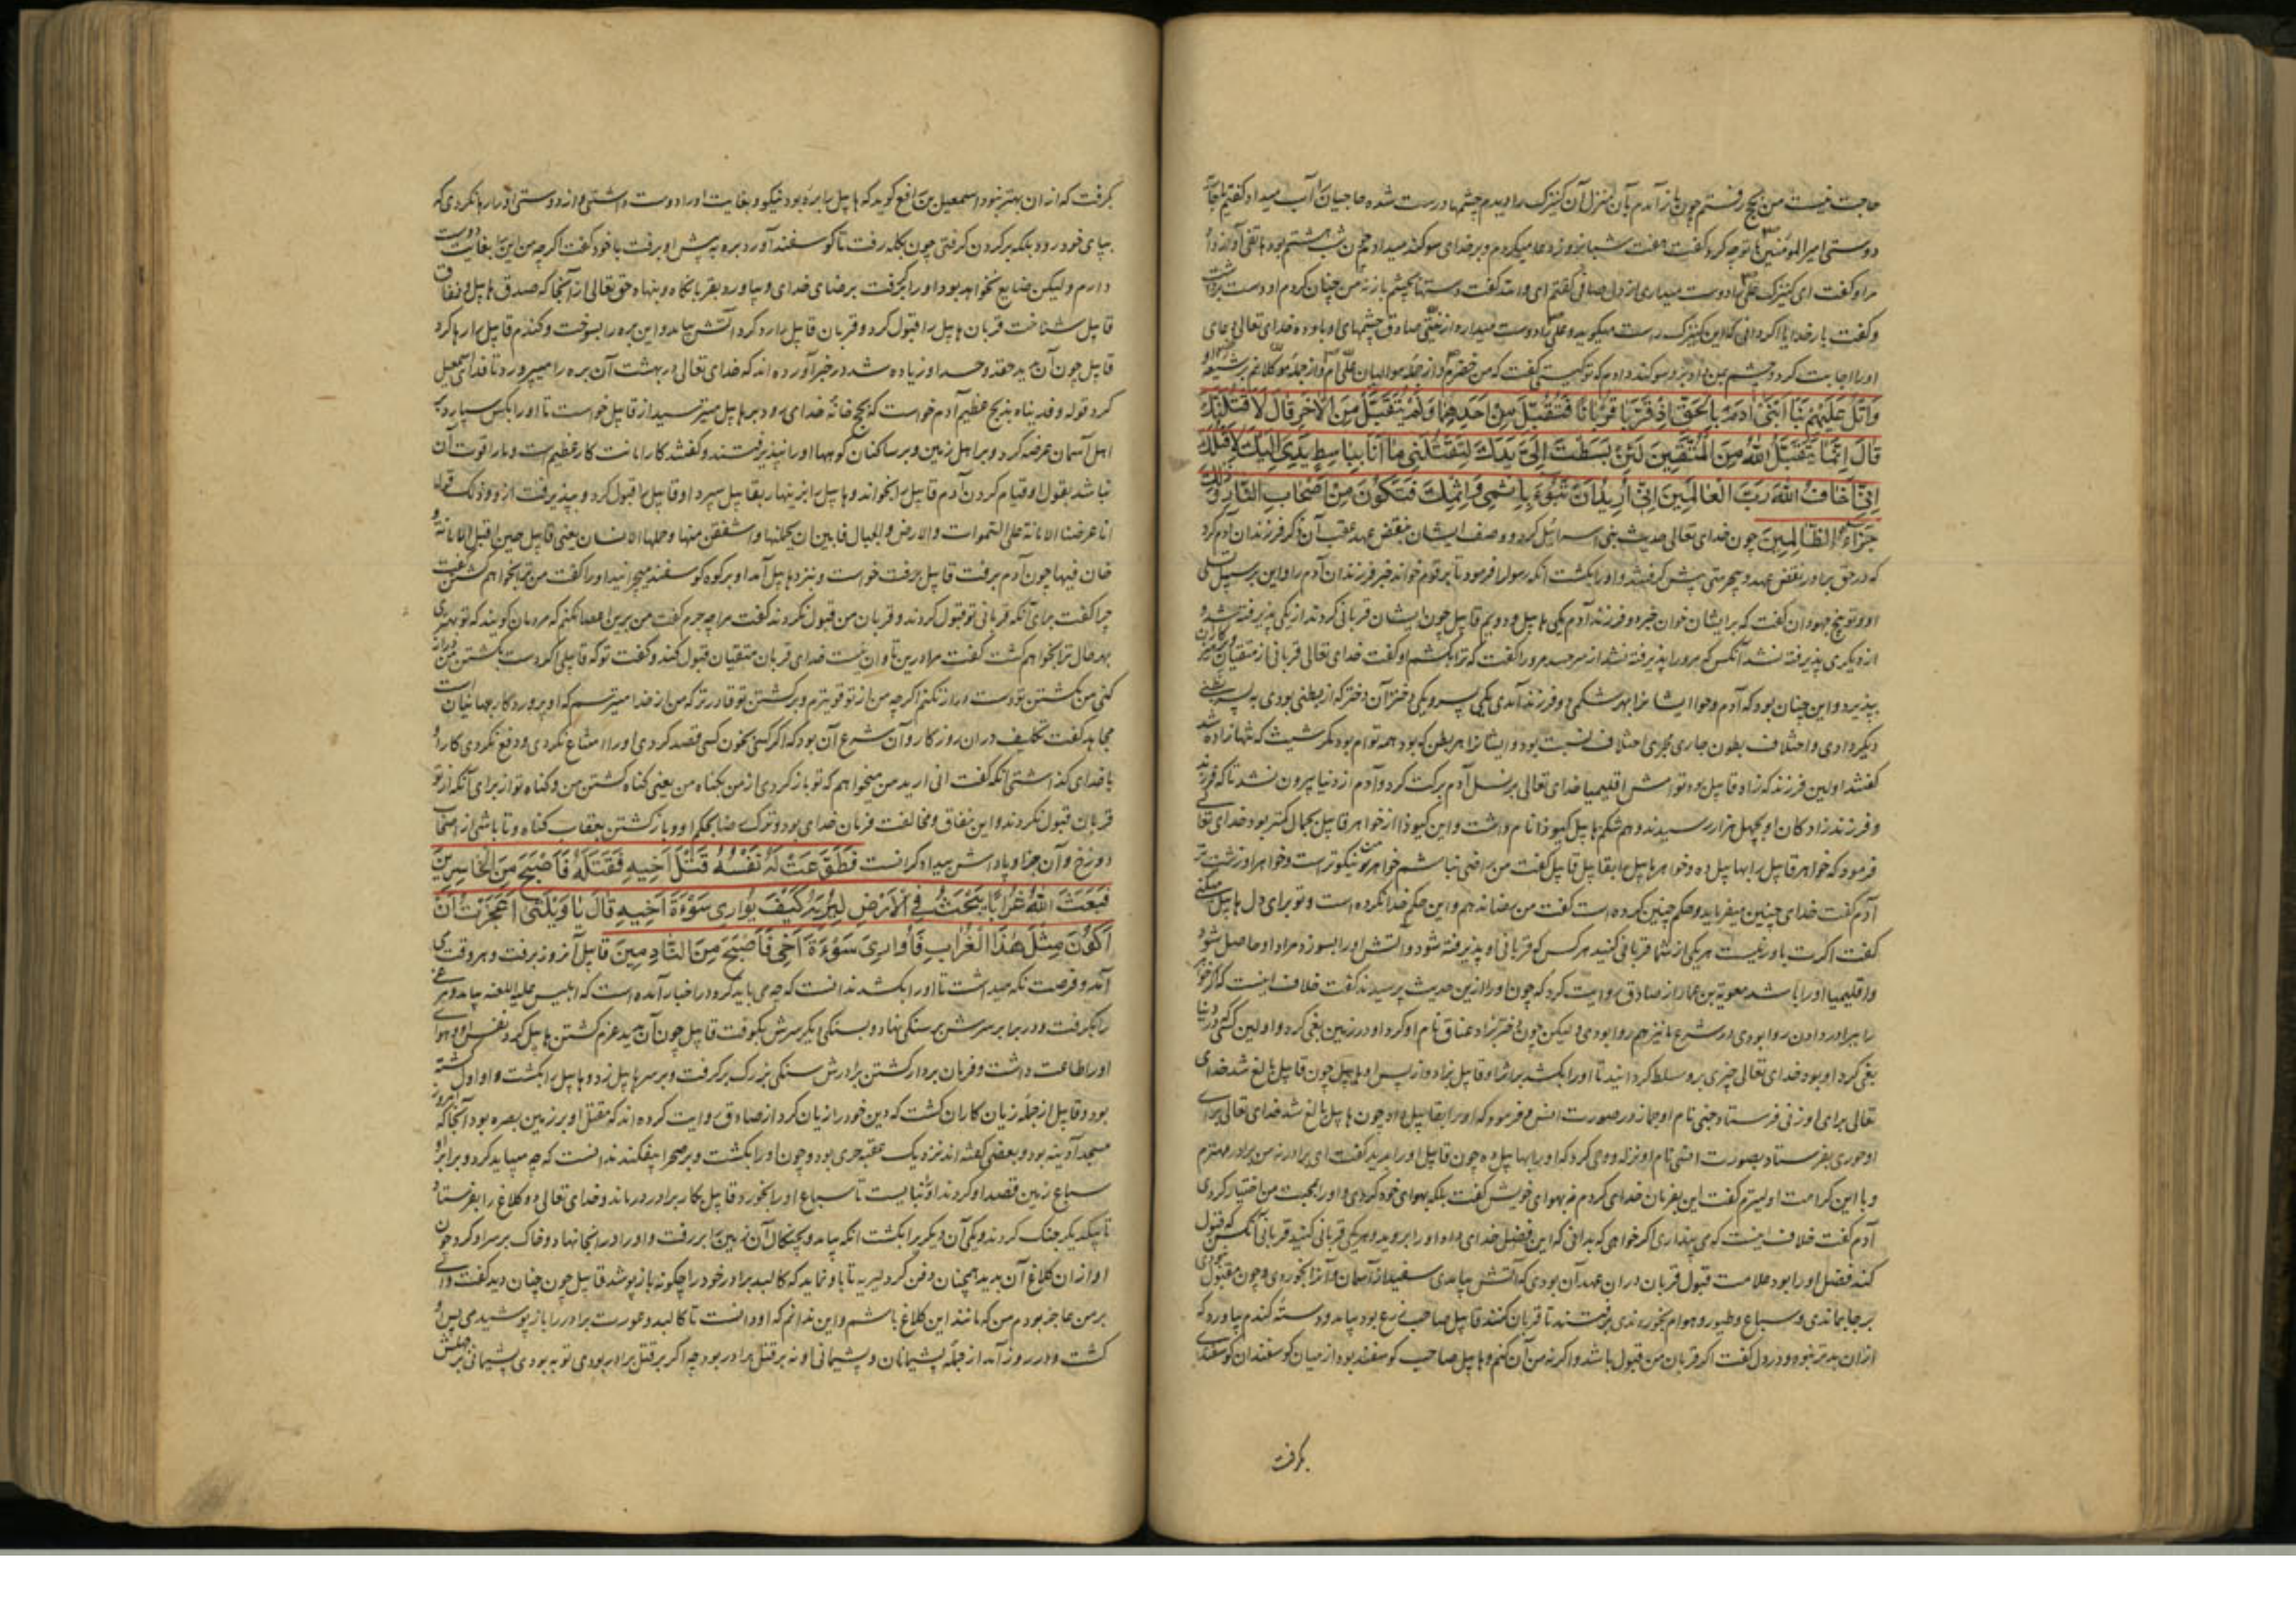 حاجت نیست من بحج رفتم چون باز آمدم بآن منزل آن کنیزک را دیدم چشمها درست شده حاجیان را آب میداد گفتم بجاه
دوستی امیر المؤمنین با تو چه کرد گفت هفت شبانروز دعا میکردم و بر خدای سوگند میدادم چون شب هشتم بود هاتفی آواز داد
مرا و گفت ای کنیزک علی را دوست میداری از دل صافی گفتم ای والله گفت دستها بچشم باز نه من چنان کردم او دست برداشت
و گفت بار خدایا اگر دانی که این کنیزک راست میگوید و علی را دوست میدارد از نیتی صادق چشمهای او باو ده خدای تعالی دعای
او را اجابت کرد و چشم بمن داد برو سوگند دادم که تو کیستی گفت که من خضرم و از جمله موالیان علی ام و از جمله موکلانم بر شیعه او
وَاتْلُ عَلَیْهِمْ نَبَأَ ابْنَیْ آدَمَ بِالْحَقِّ اِذْ قَرَّبَا قُرْبَانًا فَتُقُبِّلَ مِنْ اَحَدِهِمَا وَلَمْ یُتَقَبَّلْ مِنَ الْآخَرِ قَالَ لَاَقْتُلَنَّكَ
قَالَ اِنَّمَا یَتَقَبَّلُ اللّٰهُ مِنَ الْمُتَّقِینَ لَئِنْ بَسَطْتَ اِلَیَّ یَدَكَ لِتَقْتُلَنِی مَا اَنَا بِبَاسِطٍ یَدِیَ اِلَیْكَ لِاَقْتُلَكَ
اِنِّی اَخَافُ اللّٰهَ رَبَّ الْعَالَمِینَ اِنِّی اُرِیدُ اَنْ تَبُوءَ بِاِثْمِی وَاِثْمِكَ فَتَكُونَ مِنْ اَصْحَابِ النَّارِ وَذٰلِكَ
جَزَاءُ الظَّالِمِینَ چون خدای تعالی حدیث بنی اسرائیل کرد و وصف ایشان بنقض عهد عقب آن ذکر فرزندان آدم کرد
که در حق برادر نقض عهد و بیحرمتی پیش گرفتند و او را بکشت آنکه رسول را فرمود تا بر قوم خواند خبر فرزندان آدم را و این بر سبیل تسلی
او و توبیخ جهودان گفت که بر ایشان خوان خبر دو فرزند آدم یکی هابیل و دویم قابیل چون ایشان قربانی کردند از یکی پذیرفته شد و
از دیگری پذیرفته نشد آنکس که مرو را پذیرفته نشد از سر حسد مرو را گفت که ترا بکشم او گفت خدای تعالی قربانی از متقیان
بپذیرد و این چنان بود که آدم و حوا ایشانرا بهر شکمی دو فرزند آمدی یکی پسر و یکی دختر آن دختر که از بطنی بودی به پسر بطنی
دیگر دادی و اختلاف بطون جاری مجری اختلاف نسبت بود و ایشانرا هر بطن که بود همه توام بود مگر شیث که تنها زاده شد
گفتند اولین فرزند که زاد قابیل بود و توامش اقلیمیا خدای تعالی بر نسل آدم برکت کرد و آدم از دنیا بیرون نشد تا که فرزند
و فرزند زادگان او بچهل هزار رسیدند و هم شکم هابیل کیوذا نام داشت و این کیوذا از خواهر قابیل بجمال کمتر بود خدای تعالی
فرمود که خواهر قابیل را بهابیل ده و خواهر هابیل را بقابیل قابیل گفت من راضی نباشم خواهر من نیکوتر است و خواهر او زشت تر
آدم گفت خدای چنین میفرماید و حکم چنین کرده است گفت من رضا ندهم و این حکم خدا نکرده است و تو برای دل هابیل میکنی
گفت اگرت باور نیست هر یکی از شما قربانی کنید هر کس که قربانی او پذیرفته شود و آتش او را بسوزد مراد او حاصل شود
و اقلیمیا او را باشد معویة بن عمار از صادق روایت کرد که چون او را ازین حدیث پرسیدند گفت خلاف اینست که اگر خواهر
را ببرادر دادن روا بودی در شرع ما نیز هم روا بودی و لیکن چون دختر بزاد عناق نام او کرد او در زمین بغی کرد و اولین کسی که در دنیا
بغی کرد او بود خدای تعالی چیزی برو مسلط گردانید تا او را بکشت بر اثر او قابیل بزاد و از پس او هابیل چون قابیل بالغ شد خدای
تعالی برای او زنی فرستاد جنی نام او جمانه در صورت انس و فرمود که او را بقابیل ده و چون هابیل بالغ شد خدای تعالی برای
او حوری بفرستاد بصورت انسی نام او نزله و وحی کرد که او را بهابیل ده چون قابیل او را بدید گفت ای پدر نه من برادر مهترم
و با این کرامت اولیترم گفت این بفرمان خدای کردم نه بهوای خویش گفت بلکه بهوای خود کردی و او را بمحبت من اختیار کردی
آدم گفت خلاف اینست که می پنداری اگر خواهی که بدانی که این فضل خدای داد او را بروید و هر یکی قربانی کنید قربانی آنکس که قبول
کند فضل او را بود علامت قبول قربان در آن عهد آن بودی که آتش بیامدی سفید از آسمان و آنرا بخوردی و چون مقبول نبودی
بر جا بماندی و سباع و طیور و هوام بخوردندی برفتند تا قربان کنند قابیل صاحب زرع بود بیامد و دسته گندم بیاورد که
ازان بدتر نبود و در دل گفت اگر قربان من قبول باشد و اگر نه من آن کنم و هابیل صاحب گوسفند بود از میان گوسفندان گوسفندی
بگرفت
بگرفت که از ان بهتر نبود اسمعیل بن رافع گوید که هابیل را بره بود نیکو و بغایت او را دوست داشتی و از دوستی او را رها نکردی که
بپای خود رود بلکه بر گردن گرفتی چون بگله رفت تا گوسفند آورد بره پیش او برفت با خود گفت اگر چه من این را بغایت دوست
دارم و لیکن ضایع نخواهد بود او را بگرفت برضای خدای و بیاورد بقربانگاه و بنهاد حق تعالی از آنجا که صدق هابیل و نفاق
قابیل شناخت قربان هابیل را قبول کرد و قربان قابیل را رد کرد آتش بیامد و این بره را بسوخت و گندم قابیل را رها کرد
قابیل چون آن بدید حقد و حسد او زیاده شد در خبر آورده اند که خدای تعالی در بهشت آن بره را میپرورد تا فدای اسمعیل
کرد قوله و فدیناه بذبح عظیم آدم خواست که بحج خانه خدای رود بر هابیل میترسید از قابیل خواست تا او را بکس سپارد بر
اهل آسمان عرضه کرد و بر اهل زمین و بر ساکنان کوهها او را نپذیرفتند و گفتند کار امانت کار عظیم است و ما را قوت آن
نباشد بقول او قیام کردن آدم قابیل را بخواند و هابیل را بزینهار بقابیل سپرد او قابیل را قبول کرد و بپذیرفت ازو و ذلک قوله
انا عرضنا الامانة علی السموات والارض والجبال فابین ان یحملنها واشفقن منها وحملها الانسان یعنی قابیل حین قبل الامانة و
خان فیها چون آدم برفت قابیل برفت خواست و بنزد هابیل آمد او بر کوه گوسفند میچرانید او را گفت من ترا بخواهم کشتن گفت
چرا گفت برای آنکه قربانی تو قبول کردند و قربان من قبول نکردند گفت مرا چه جرم گفت من برین رضا نکنم که مردمان گویند که تو بهتری
بهر حال ترا بخواهم کشت گفت مرا درین تاوان نیست خدای قربان متقیان قبول کند و گفت تو که قابیلی اگر دست بکشتن من دراز
کنی من بکشتن تو دست دراز نکنم اگر چه من از تو قویترم و بر کشتن تو قادر تر که من از خدا میترسم که او پروردگار جهانیان است
مجاهد گفت تکلیف در ان روزگار و آن شرع آن بود که اگر کسی بخون کسی قصد کردی او را امتناع نکردی و دفع نکردی کار او
با خدای گذاشتی آنکه گفت انی ارید من میخواهم که تو باز گردی از من بگناه من یعنی گناه کشتن من و گناه تو از برای آنکه از تو
قربان قبول نکردند و این نفاق و مخالفت فرمان خدای بود و ترک رضا بحکم او و باز گشتن بعقاب گناه و تا باشی از اصحاب
دوزخ و آن جزا و پاداش بیدادگرانست فَطَوَّعَتْ لَهُ نَفْسُهُ قَتْلَ اَخِیهِ فَقَتَلَهُ فَاَصْبَحَ مِنَ الْخَاسِرِینَ
فَبَعَثَ اللّٰهُ غُرَابًا یَبْحَثُ فِی الْاَرْضِ لِیُرِیَهُ كَیْفَ یُوَارِی سَوْءَةَ اَخِیهِ قَالَ یَا وَیْلَتَی اَعَجَزْتُ اَنْ
اَكُونَ مِثْلَ هٰذَا الْغُرَابِ فَاُوَارِیَ سَوْءَةَ اَخِی فَاَصْبَحَ مِنَ النَّادِمِینَ قابیل آنروز برفت و هر وقتی
آمد و فرصت نگه میداشت تا او را بکشد ندانست که چه می باید کرد در اخبار آمده است که ابلیس علیه اللعنه بیامد و مرغی
را بگرفت و در برابر سرش بر سنگی نهاد و بسنگی دیگر سرش بکوفت قابیل چون آن بدید عزم کشتن هابیل کرد و نفس او و هوای
او را طاعت داشت و فرمان بردار کشتن برادرش سنگی بزرگ بر گرفت و بر سر هابیل زد و هابیل را بکشت و او اول کشته
بود و قابیل از جمله زیان کاران گشت که دین خود را زیان کرد از صادق روایت کرده اند که مقتل او بر زمین بصره بود آنجا که امروز
مسجد آدینه بود و بعضی گفته اند نزدیک عقبه حری بود و چون او را بکشت و بر صحرا بیفکند ندانست که چه میباید کرد و برابر او
سباع زمین قصد او کردند او تبایست تا سباع او را بخورد قابیل بکار برادر درماند و خدای تعالی دو کلاغ را بفرستاد
تا بیکدیگر جنگ کردند و یکی آن دیگر را بکشت آنکه بیامد و بچنگال آن زمین را برفت و او را در انجا نهاد و خاک بر سر او کرد چون
او از ان کلاغ آن بدید همچنان دفن کرد لیریه تا باو نماید که کالبد برادر خود را چگونه باز پوشد قابیل چون چنان دید گفت وای
بر من عاجز بودم من که مانند این کلاغ باشم و این ندانم که او دانست تا کالبد و عورت برادر را باز پوشیدمی پس او
گشت و در روز آمد از جمله پشیمانان و پشیمانی او نه بر قتل برادر بود چه اگر بر قتل برادر بودی توبه بودی پشیمانی بر حملش